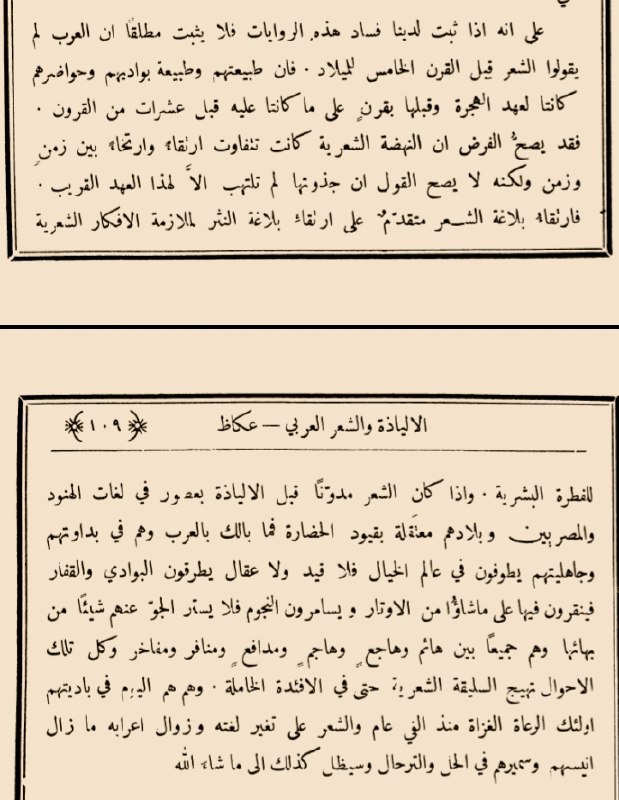 على انه اذا ثبت لدينا فساد هذه الروايات فلا يثبت مطلقًا ان العرب لم
يقولوا الشعر قبل القرن الخامس للميلاد . فان طبيعتهم وطبيعة بواديهم وحواضرهم
كانتا لعهد الهجرة وقبلها بقرنٍ على ما كانتا عليه قبل عشرات من القرون .
فقد يصحُّ الفرض ان النهضة الشعرية كانت تتفاوت ارتقاءً وارتخاءً بين زمنٍ
وزمن ولكنه لا يصح القول ان جذوتها لم تلتهب الاَّ لهذا العهد القريب .
فارتقاءُ بلاغة الشعر متقدّمٌ على ارتقاء بلاغة النثر لملازمة الافكار الشعرية
الالياذة والشعر العربي — عكاظ ١٠٩
للفطرة البشرية . واذا كان الشعر مدوّنًا قبل الالياذة بعصور في لغات الهنود
والمصريين وبلادهم معتَقلة بقيود الحضارة فما بالك بالعرب وهم في بداوتهم
وجاهليتهم يطوفون في عالم الخيال فلا قيد ولا عقال يطرقون البوادي والقفار
فينقرون فيها على ماشاؤُا من الاوتار ويسامرون النجوم فلا يستر الجوّ عنهم شيئًا من
بهائها وهم جميعًا بين هائم وهاجعٍ وهاجمٍ ومدافعٍ ومنافر ومفاخر وكل تلك
الاحوال تهيج السليقة الشعرية حتى في الافئدة الخاملة . وهم هم اليوم في باديتهم
اولئك الرعاة الغزاة منذ الفي عام والشعر على تغير لغته وزوال اعرابه ما زال
انيسهم وسميرهم في الحل والترحال وسيظل كذلك الى ما شاء الله